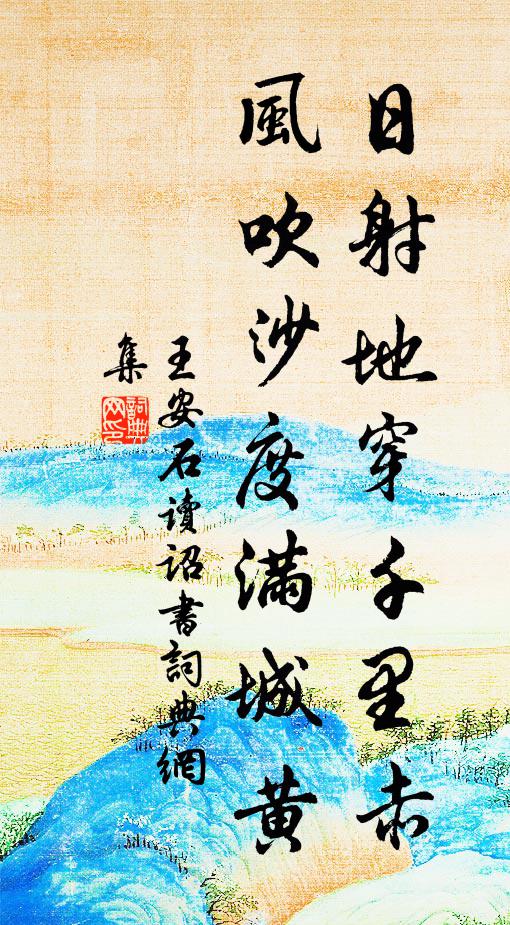 日射地穿千里赤
風吹沙度滿城黃
王安石讀詔書詞典網
集
詞典
網印